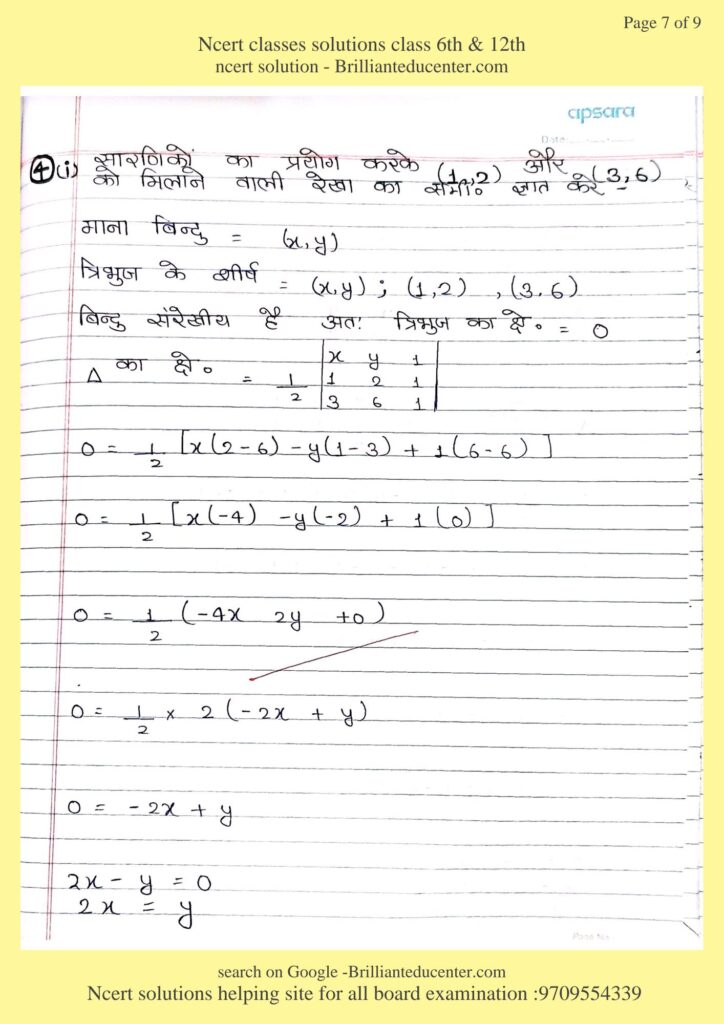 Page 7 of 9
Ncert classes solutions class 6th & 12th
ncert solution - Brillianteducenter.com
apsara
Date
4 (i) सारणिकों का प्रयोग करके (1,2) और (3,6)
को मिलाने वाली रेखा का समी० ज्ञात करे -
माना बिन्दु = (x,y)
त्रिभुज के शीर्ष = (x,y) ; (1,2) , (3,6)
बिन्दु संरेखीय है अतः त्रिभुज का क्षे० = 0
Δ का क्षे० = 1/2 |x y 1|
|1 2 1|
|3 6 1|
0 = 1/2 [x(2-6) -y(1-3) + 1(6-6)]
0 = 1/2 [x(-4) -y(-2) + 1(0)]
0 = 1/2 (-4x 2y +0)
0 = 1/2 × 2 (-2x + y)
0 = -2x + y
2x - y = 0
2x = y
Page No
search on Google -Brillianteducenter.com
Ncert solutions helping site for all board examination :9709554339